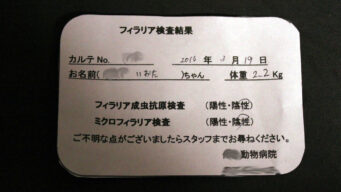 フィラリア検査結果
カルテNo. 2016年3月19日
お名前( )ちゃん 体重2.2Kg
フィラリア成虫抗原検査 (陽性・陰性)
ミクロフィラリア検査 (陽性・陰性)
ご不明な点がございましたらスタッフまでお尋ねください。
動物病院